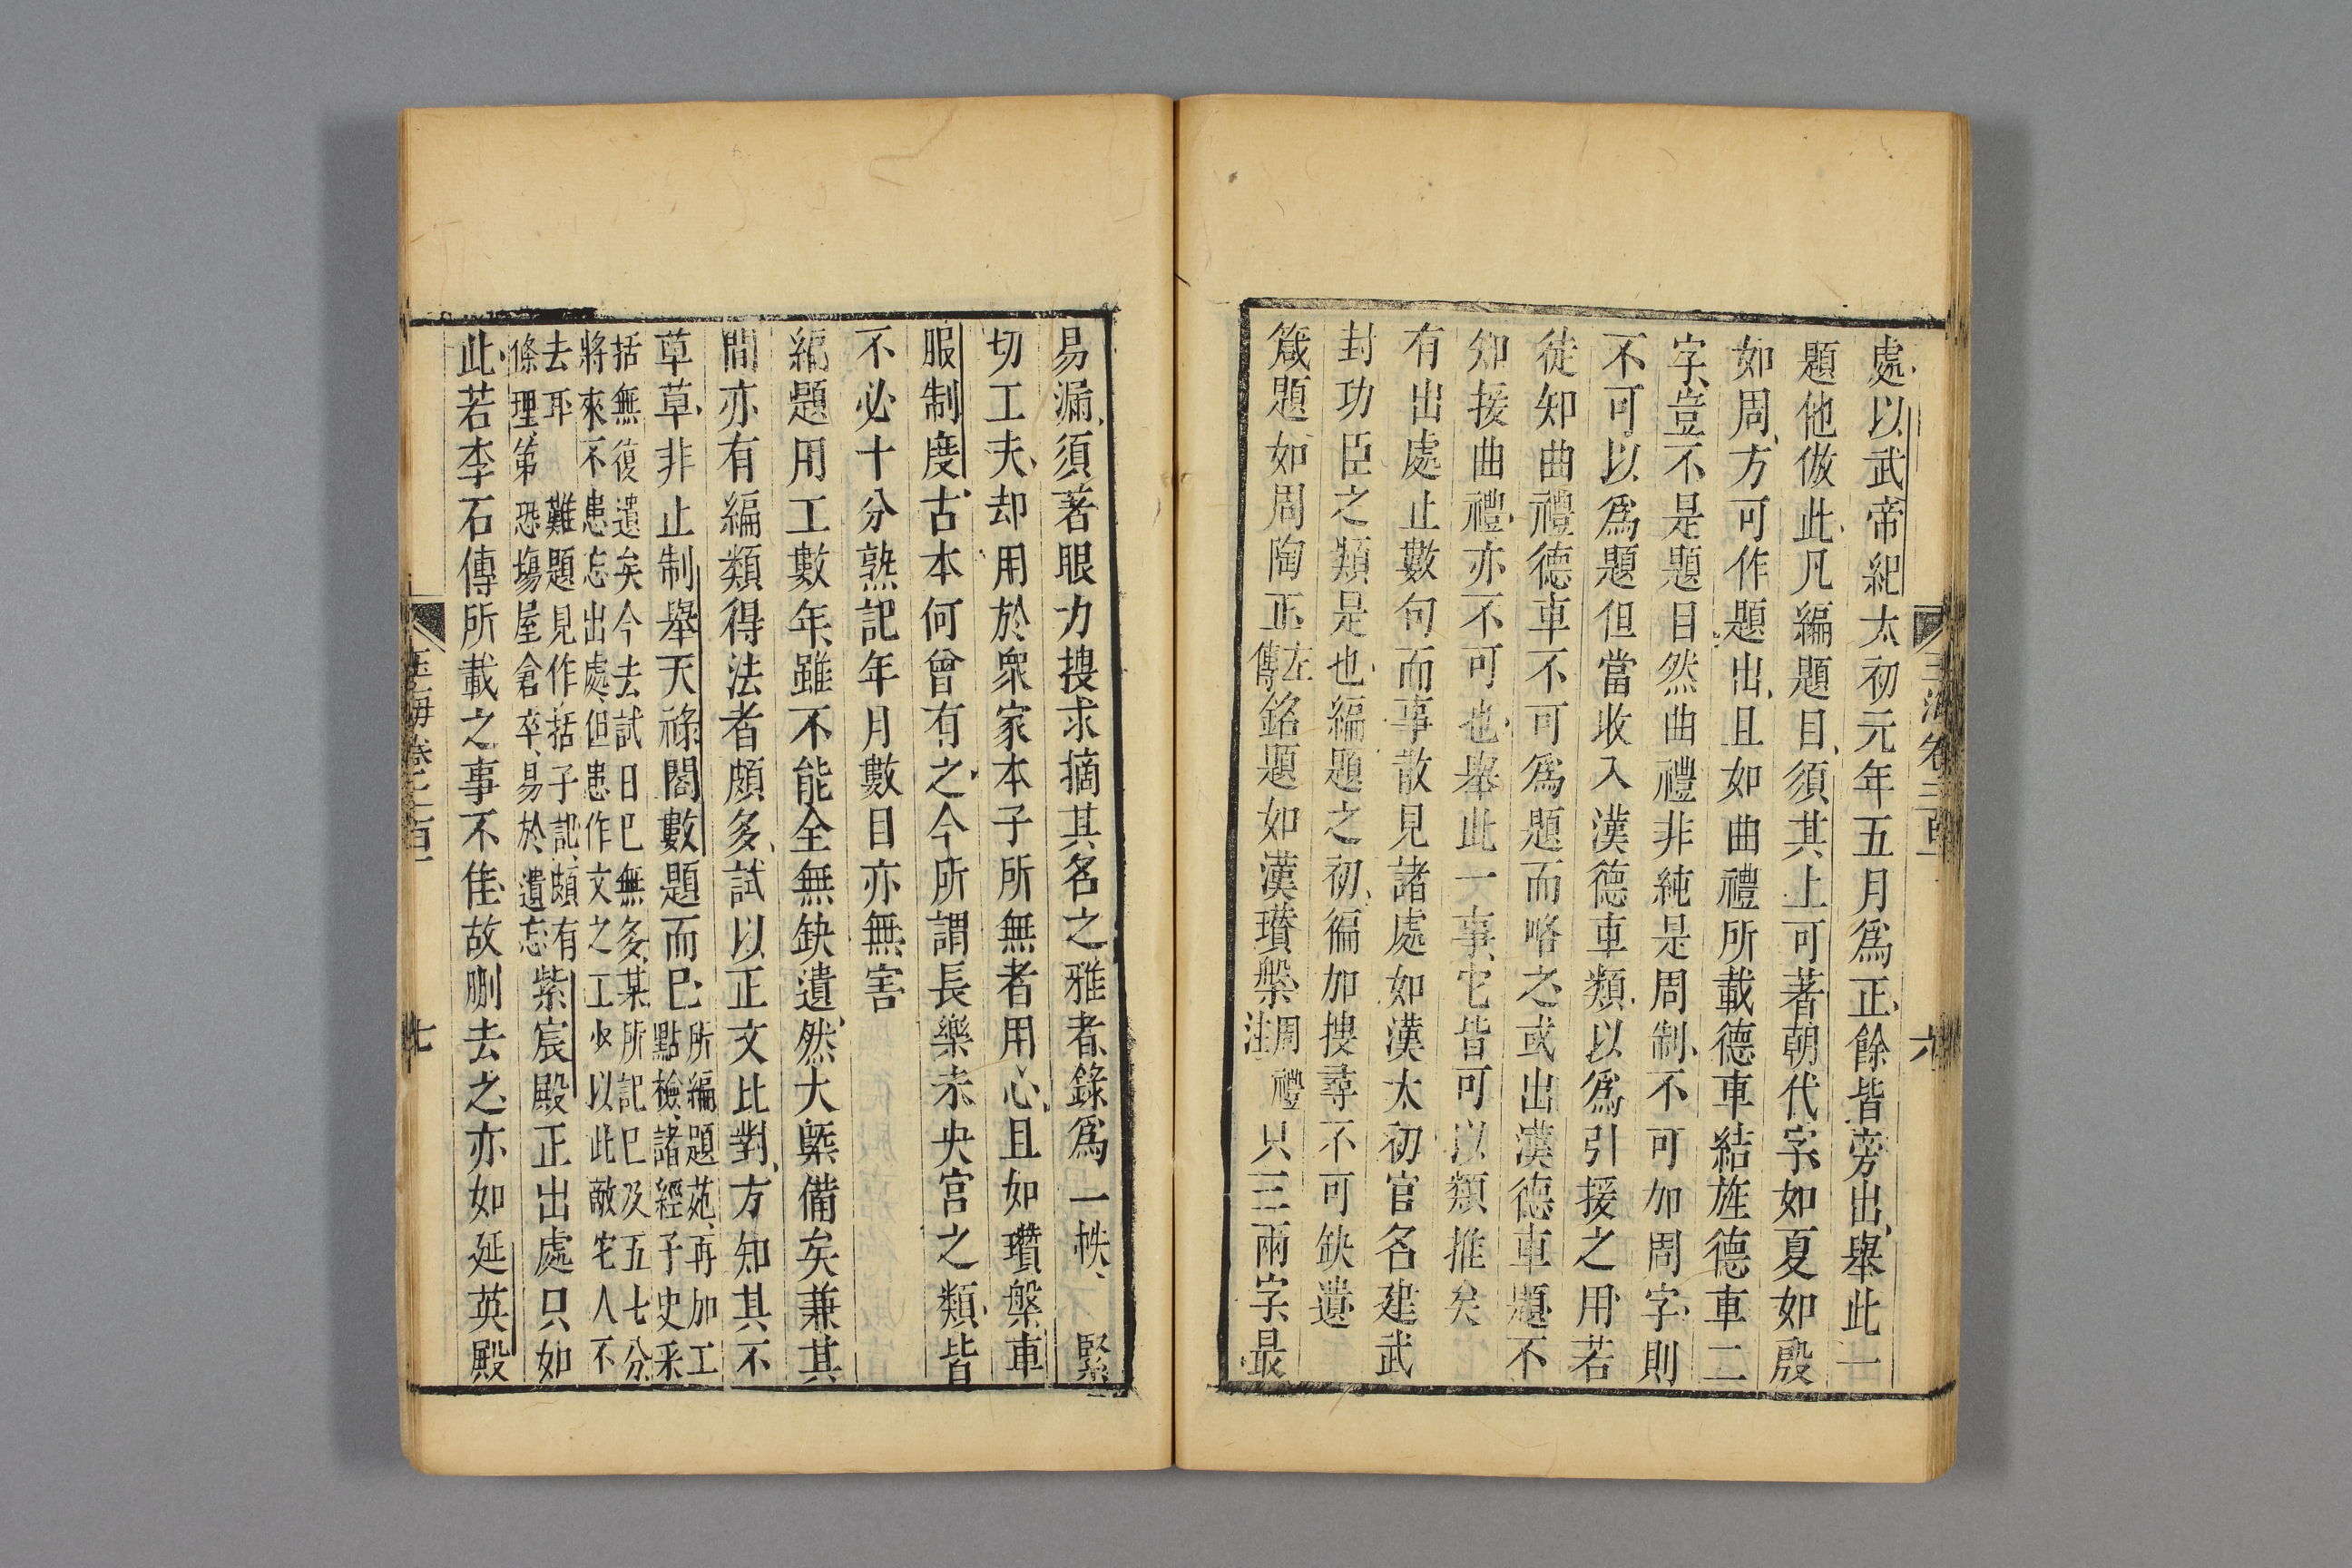 處以武帝紀太初元年五月爲正餘皆旁出舉此一
題他倣此凡編題目須其上可著朝代字如夏如殷
如周方可作題出且如曲禮所載德車結旌德車二
字豈不是題目然曲禮非純是周制不可加周字則
不可以爲題但當收入漢德車類以爲引援之用若
徒知曲禮德車不可爲題而略之或出漢德車題不
知援曲禮亦不可也舉此一事它皆可以類推矣
有出處止數句而事散見諸處如漢太初官名建武
封功臣之類是也編題之初徧加搜尋不可缺遺
箴題如周陶正左傳銘題如漢瓚槃周禮注只三兩字最
易漏須著眼力搜求摘其名之雅者錄爲一帙緊
切工夫却用於衆家本子所無者用心且如瓚槃車
服制度古本何曾有之今所謂長樂未央宮之類皆
不必十分熟記年月數目亦無害
編題用工數年雖不能全無缺遺然大槩備矣兼其
間亦有編類得法者頗多試以正文比對方知其不
草草非止制舉天祿閣數題而已所編題苑再加工點檢諸經子史采
括無復遺矣今去試日已無多某所記已及五七分
將來不患忘出處但患作文之工少以此敵宅人不
去耳 難題見作括子記頗有
條理第恐場屋倉卒易於遺忘紫宸殿正出處只如
此若李石傳所載之事不佳故刪去之亦如延英殿
玉海卷二百
七